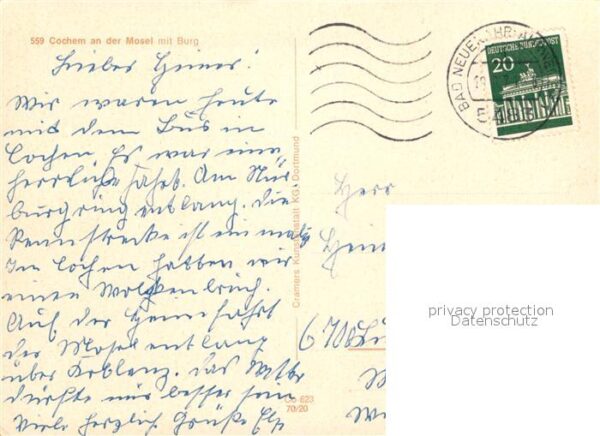 559 Cochem an der Mosel mit Burg
Lieber Heiner!
Wir waren heute
mit dem Bus in
Cochem Es war eine
herrliche Fahrt. Am Nür
burgring entlang. die
Rennstrecke ist einmalig
Im Cochem hatten wir
einen Wolkenbruch.
Auf der Heimfahrt
der Mosel entlang
über Koblenz. das Wetter
dürfte nur besser sein
Viele herzlich Grüße
Cramers Kunstanstalt KG · Dortmund
Co 623
70/20
BAD NEUENAHR-AHRWEILER
DEUTSCHE BUNDESPOST
20
Herr
Hein
6708 Lu
privacy protection
Datenschutz